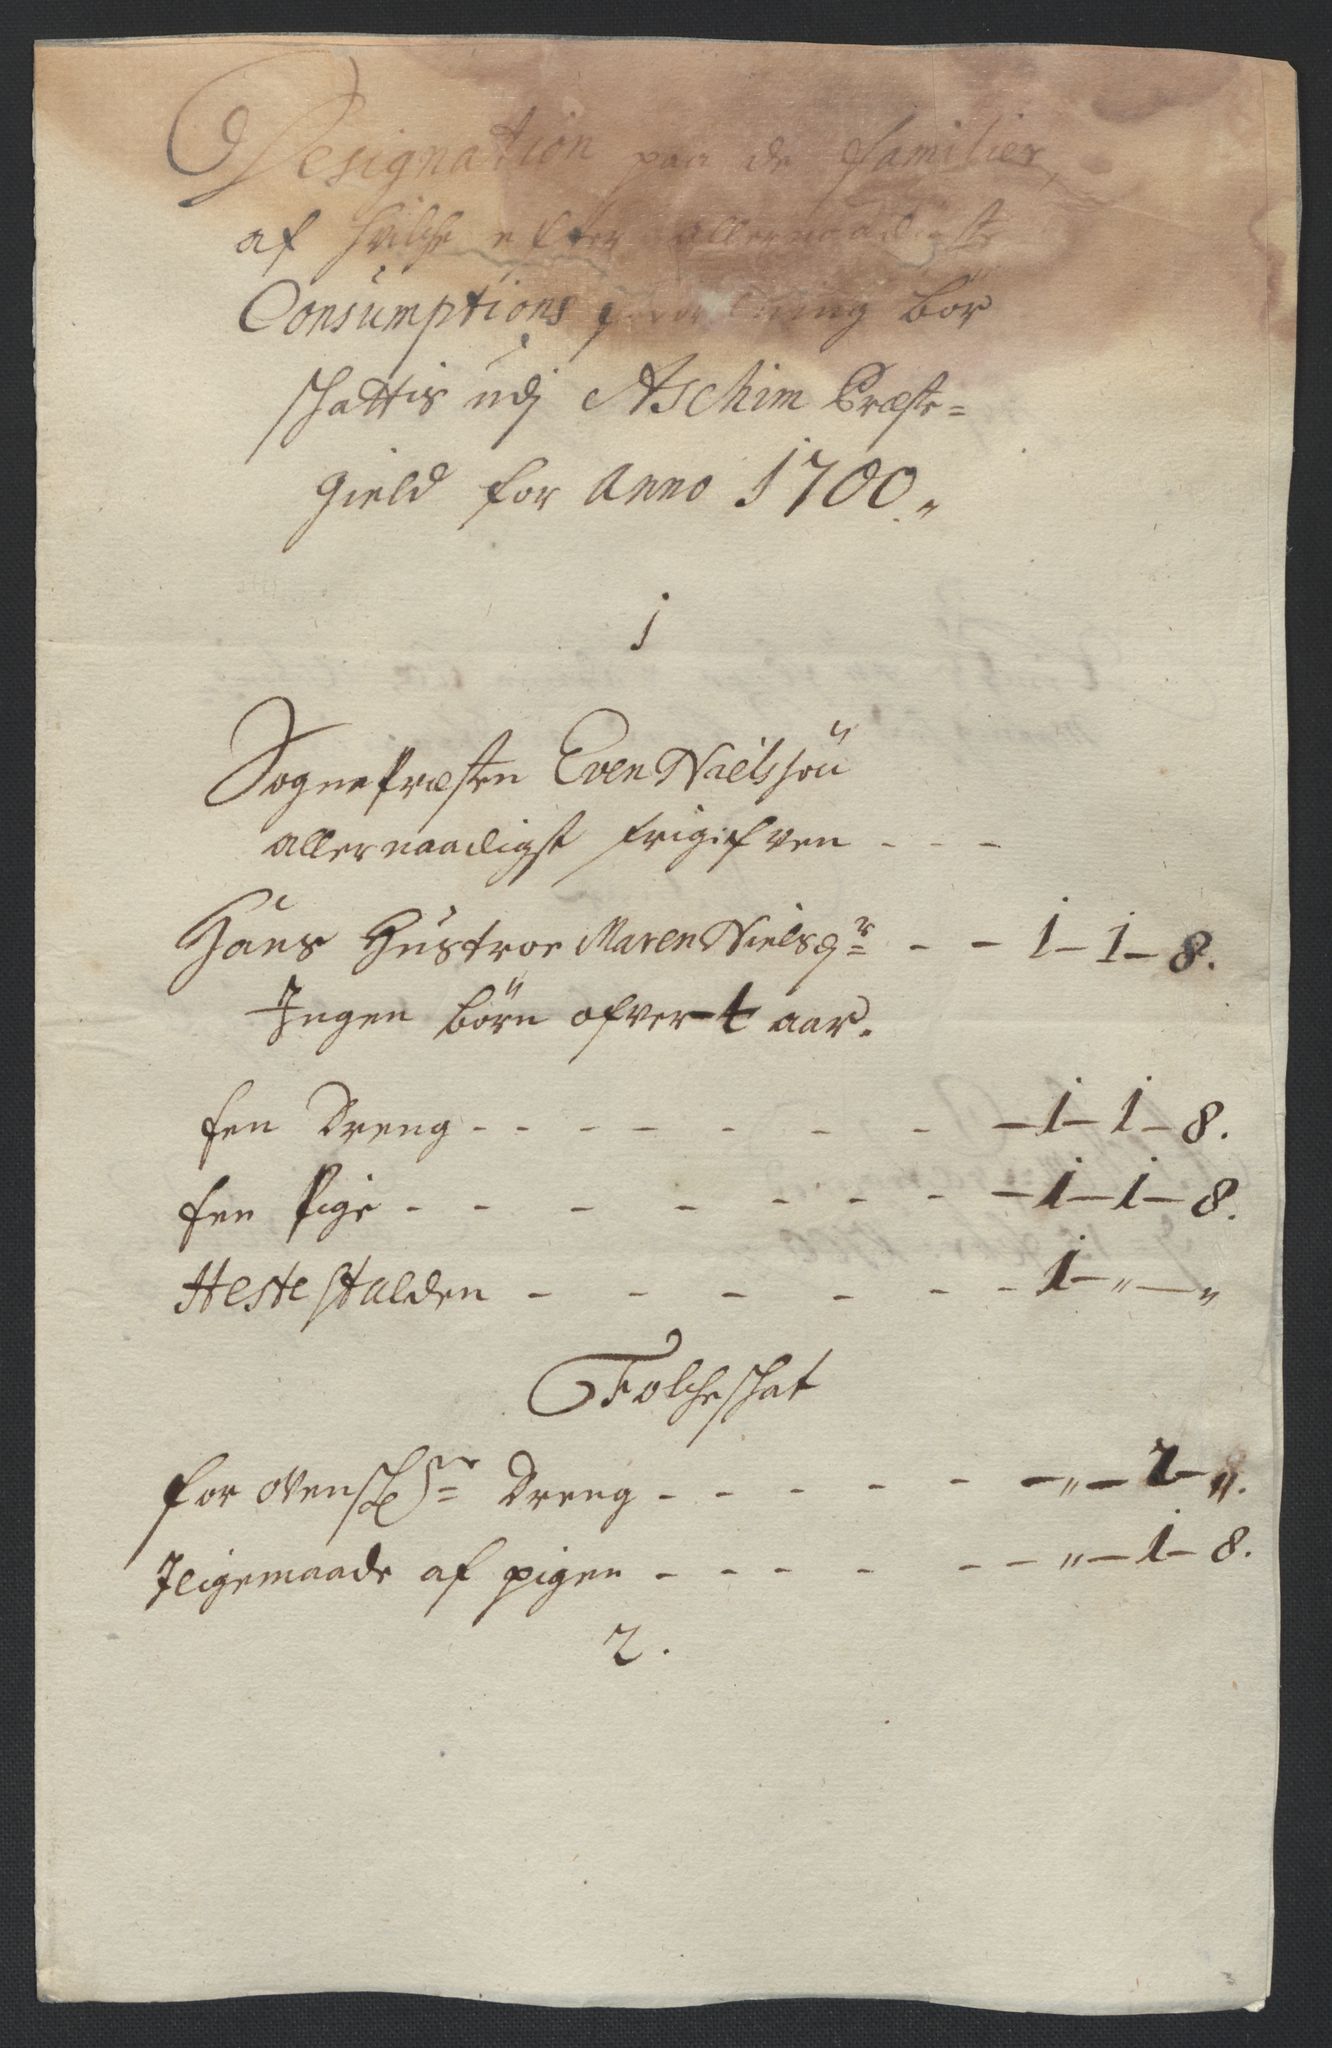 Designation paa de Familier,
af hvilche efter allernaadigste
Consumptions forordning bør
schattis udj Aschim Præste=
gield for Anno 1700„
1
Sognepræsten Even Nielssøn
allernaadigst frigifven - - -
Hans Hustroe Maren Nielsdr - - 1 - 1 - 8.
Ingen børn ofver - aar.
Een Dreng - - - - - - - - 1 - 1 - 8.
Een Pige - - - - - - - - 1 - 1 - 8.
Hestestalden - - - - - - 1 - „ - „
Folcheschat
for ovenschr Dreng - - - - - - „ - 2 - „.
Jligemaade af pigen - - - - - - „ - 1 - 8.
2.